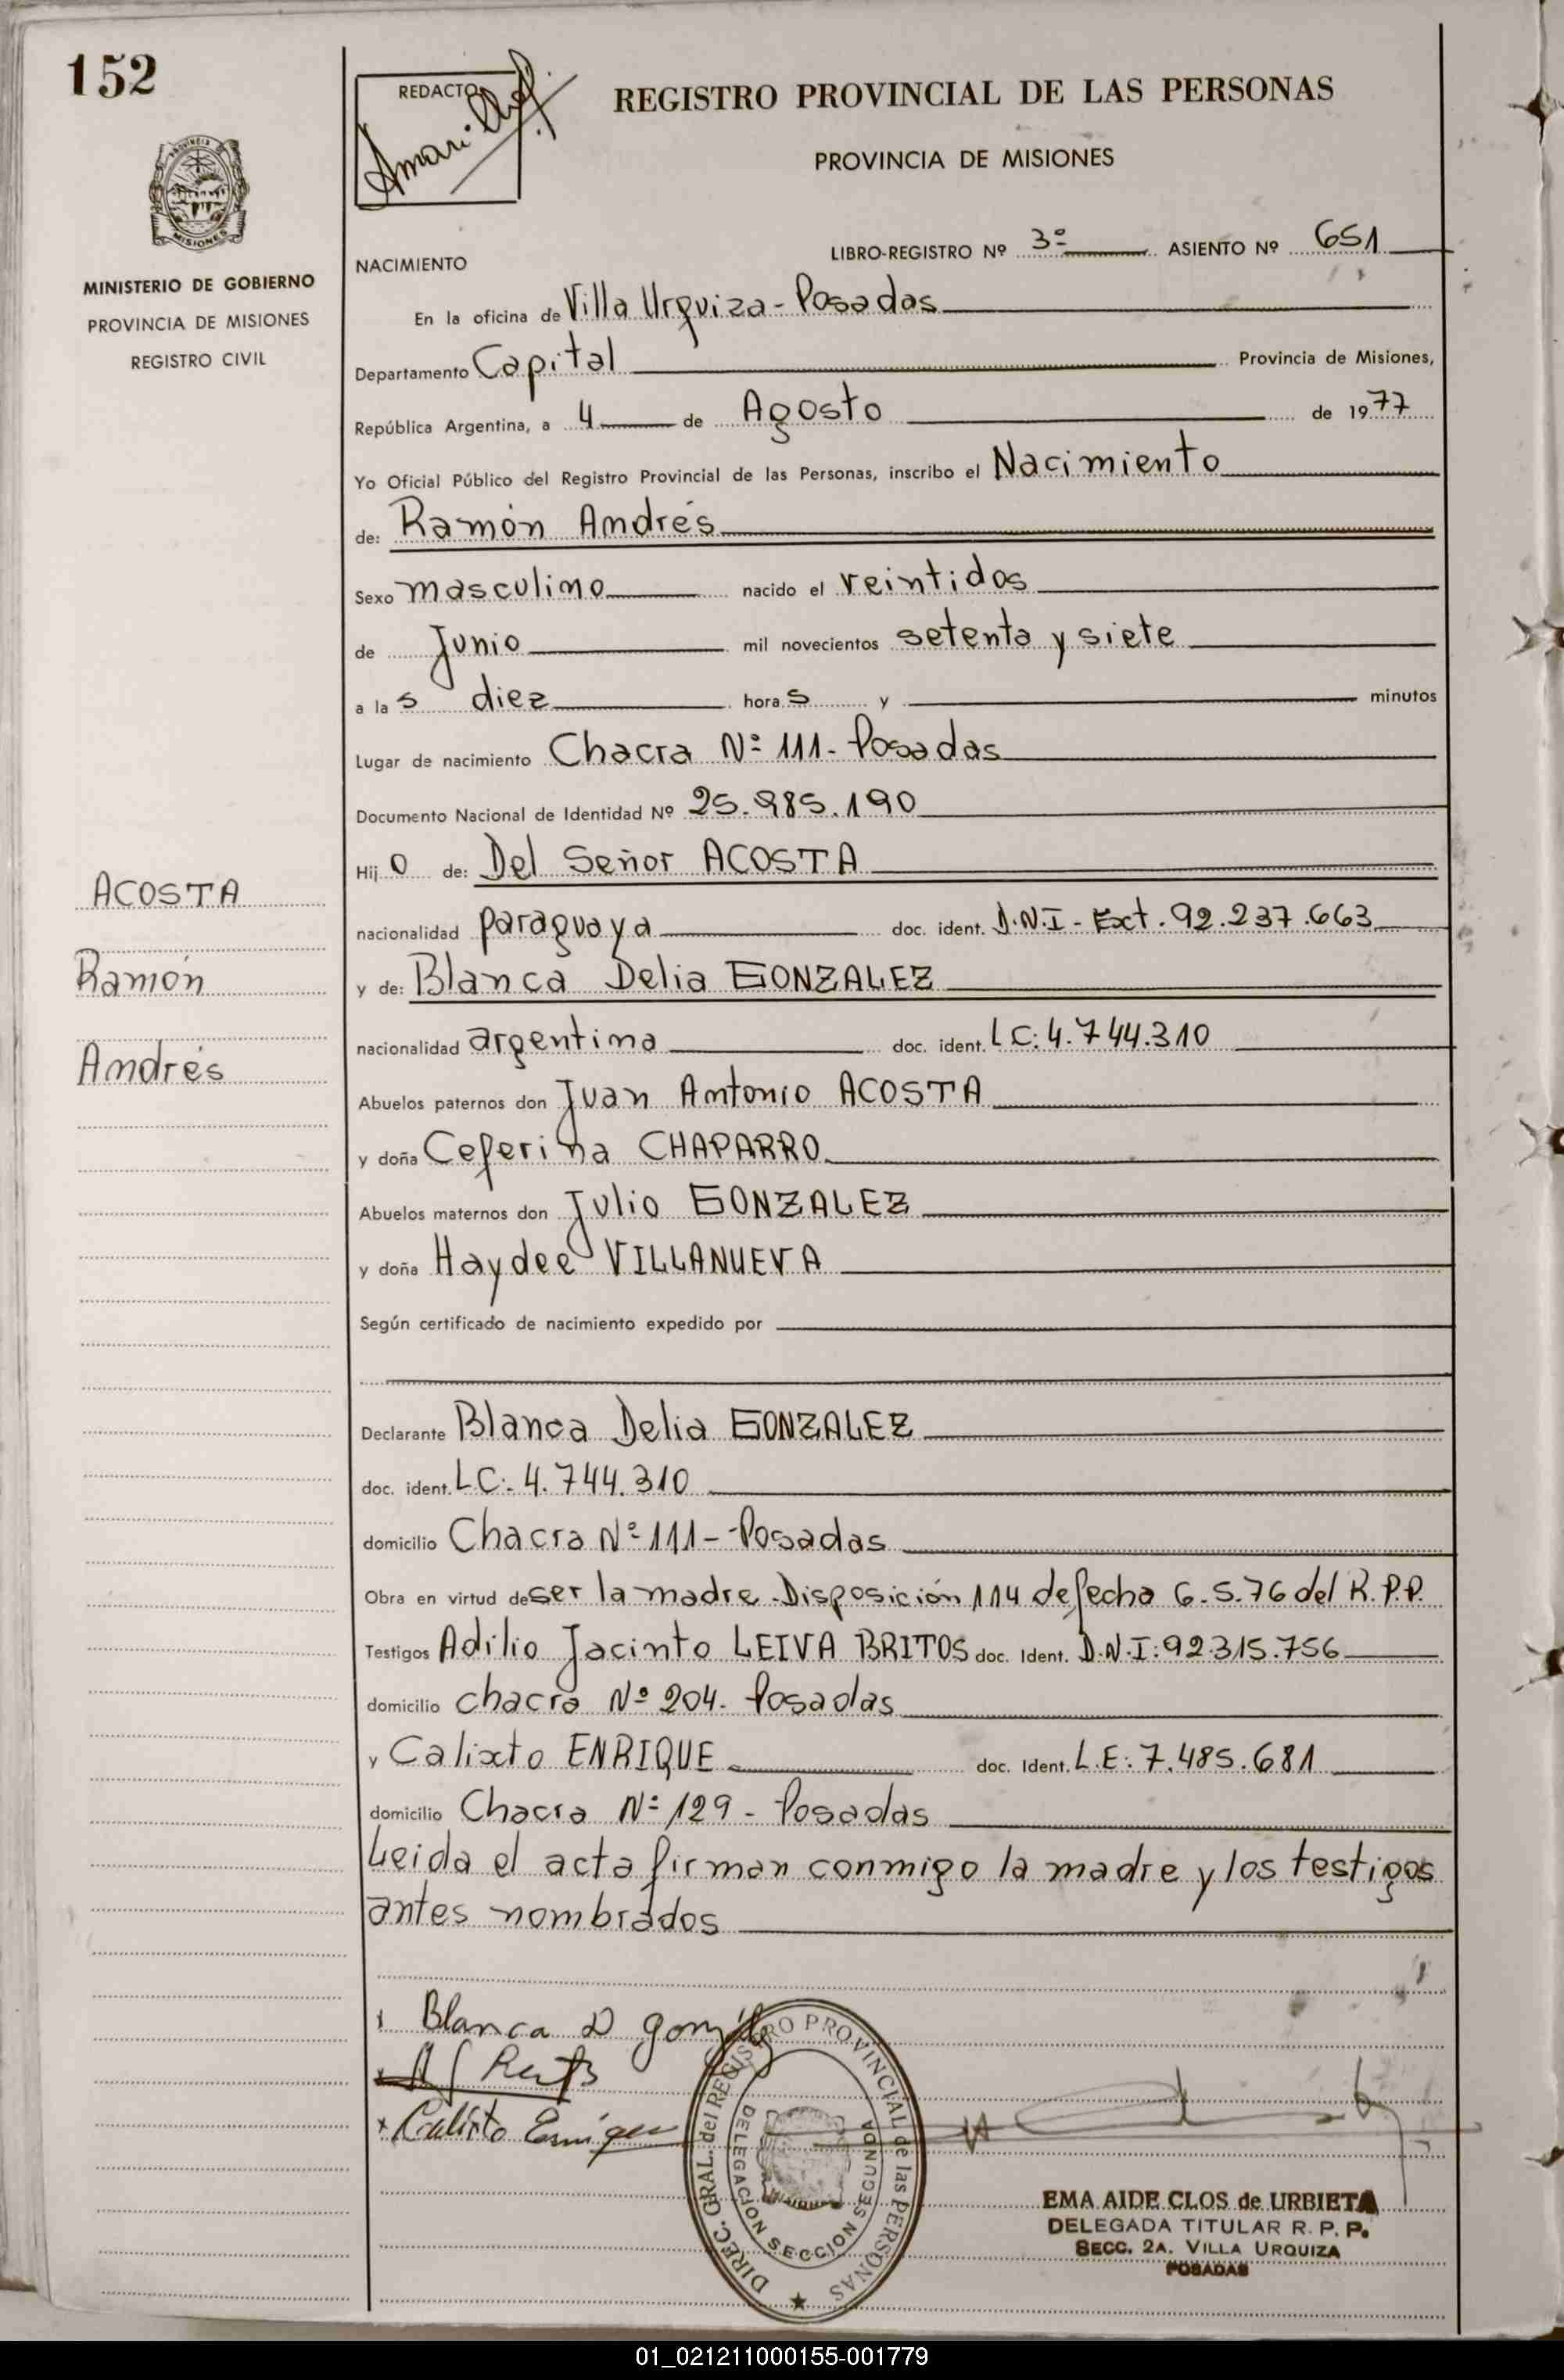 152
REDACTO
REGISTRO PROVINCIAL DE LAS PERSONAS
PROVINCIA DE MISIONES
MISIONES
MINISTERIO DE GOBIERNO
PROVINCIA DE MISIONES
REGISTRO CIVIL
LIBRO-REGISTRO Nº 3º ASIENTO Nº 651
NACIMIENTO
En la oficina de Villa Urquiza - Posadas
Departamento Capital Provincia de Misiones,
República Argentina, a 4 de Agosto de 1977
Yo Oficial Público del Registro Provincial de las Personas, inscribo el Nacimiento
de: Ramón Andrés
Sexo masculino nacido el veintidos
de Junio mil novecientos setenta y siete
a las diez horas y minutos
Lugar de nacimiento Chacra Nº 111 - Posadas
Documento Nacional de Identidad Nº 25.985.190
Hijo de: Del Señor ACOSTA
nacionalidad paraguaya doc. ident. D.N.I - Ext. 92.237.663
y de: Blanca Delia GONZALEZ
nacionalidad argentina doc. ident. LC: 4.744.310
Abuelos paternos don Juan Antonio ACOSTA
y doña Ceferina CHAPARRO
Abuelos maternos don Julio GONZALEZ
y doña Haydee VILLANUEVA
Según certificado de nacimiento expedido por
Declarante Blanca Delia GONZALEZ
doc. ident. LC: 4.744.310
domicilio Chacra Nº 111 - Posadas
Obra en virtud de ser la madre. Disposición 114 de fecha 6.5.76 del R.P.P.
Testigos Adilio Jacinto LEIVA BRITOS doc. Ident. D.N.I: 92.315.756
domicilio chacra Nº 204. Posadas
y Calixto ENRIQUE doc. Ident. L.E: 7.485.681
domicilio Chacra Nº 129 - Posadas
Leida el acta firman conmigo la madre y los testigos
antes nombrados
ACOSTA
Ramón
Andrés
Blanca D
Calisto
DIREC. GRAL. del REGISTRO PROVINCIAL de las PERSONAS
DELEGACION SECCION SEGUNDA
EMA AIDE CLOS de URBIETA
DELEGADA TITULAR R. P. P.
SECC. 2A. VILLA URQUIZA
POSADAS
01_021211000155-001779